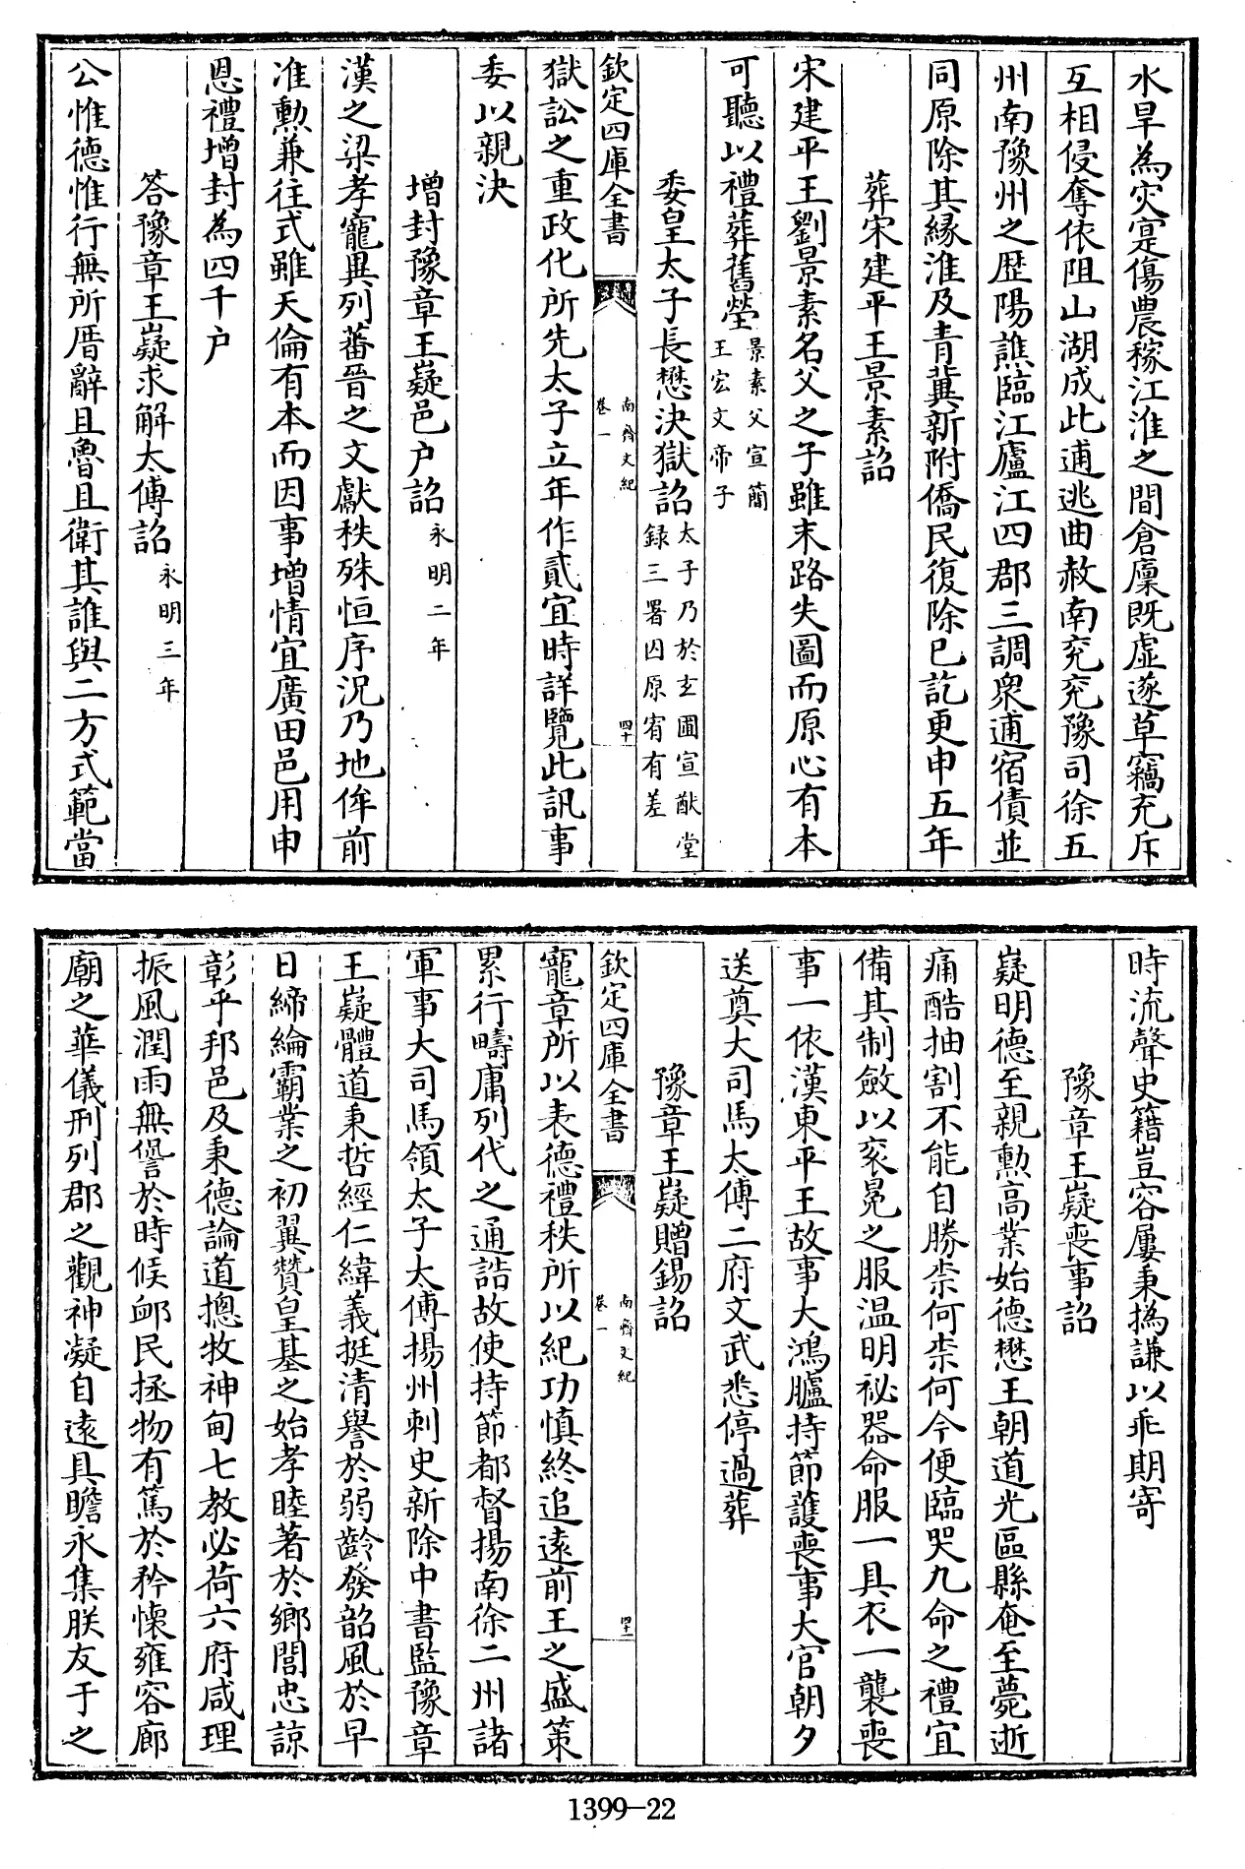 水旱為灾寔傷農稼江淮之間倉廩既虛遂草竊充斥
互相侵奪依阻山湖成此逋逃曲赦南兖兖豫司徐五
州南豫州之歴陽譙臨江廬江四郡三調衆逋宿債並
同原除其縁淮及青冀新附僑民復除已訖更申五年
葬宋建平王景素詔
宋建平王劉景素名父之子雖末路失圖而原心有本
可聽以禮葬舊塋景素父宣簡
王宏文帝子
委皇太子長懋決獄詔太子乃於玄圃宣猷堂
録三署囚原宥有差
欽定四庫全書
南齊文紀
卷一
四十
獄訟之重政化所先太子立年作貳宜時詳覽此訊事
委以親決
增封豫章王嶷邑户詔永明二年
漢之梁孝寵異列蕃晉之文獻秩殊恒序況乃地侔前
准勲兼往式雖天倫有本而因事增情宜廣田邑用申
恩禮增封為四千户
答豫章王嶷求解太傅詔永明三年
公惟德惟行無所厝辭且魯且衛其誰與二方式範當
時流聲史籍豈容屢秉撝謙以乖期寄
豫章王嶷喪事詔
嶷明德至親勲高業始德懋王朝道光區縣奄至薨逝
痛酷抽割不能自勝柰何柰何今便臨哭九命之禮宜
備其制斂以衮冕之服温明祕器命服一具衣一襲喪
事一依漢東平王故事大鴻臚持節護喪事大官朝夕
送奠大司馬太傅二府文武悉停過葬
豫章王嶷贈錫詔
欽定四庫全書
南齊文紀
卷一
四十一
寵章所以表德禮秩所以紀功慎終追遠前王之盛策
累行疇庸列代之通誥故使持節都督揚南徐二州諸
軍事大司馬領太子太傅揚州刺史新除中書監豫章
王嶷體道秉哲經仁緯義挺清譽於弱齡發韶風於早
日締綸霸業之初翼贊皇基之始孝睦著於鄉閭忠諒
彰乎邦邑及秉德論道摠牧神甸七教必荷六府咸理
振風潤雨無愆於時候卹民拯物有篤於矜懷雍容廊
廟之華儀刑列郡之觀神凝自遠具瞻永集朕友于之
1399-22